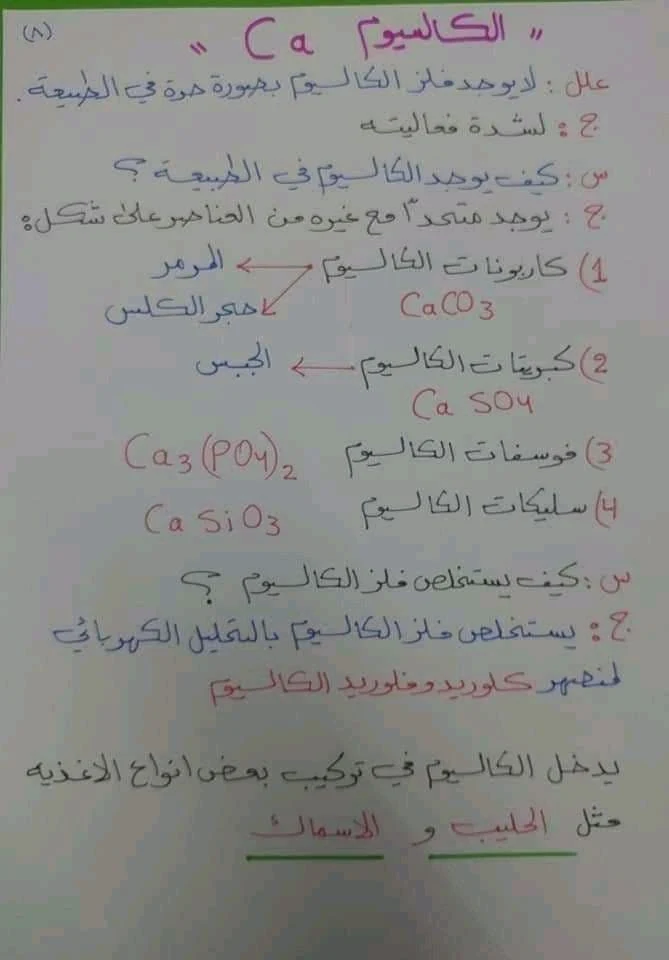 (٨)
" الكالسيوم Ca "
علل : لا يوجد فلز الكالسيوم بصورة حرة في الطبيعة .
ج : لشدة فعاليته
س : كيف يوجد الكالسيوم في الطبيعة ؟
ج : يوجد متحداً مع غيره من العناصر على شكل :
1) كاربونات الكالسيوم ← المرمر
CaCO3 حجر الكلس
2) كبريتات الكالسيوم ← الجبس
Ca SO4
3) فوسفات الكالسيوم Ca3(PO4)2
4) سليكات الكالسيوم Ca SiO3
س : كيف يستخلص فلز الكالسيوم ؟
ج : يستخلص فلز الكالسيوم بالتحليل الكهربائي
لمنصهر كلوريد وفلوريد الكالسيوم
يدخل الكالسيوم في تركيب بعض انواع الاغذيه
مثل الحليب و الاسماك